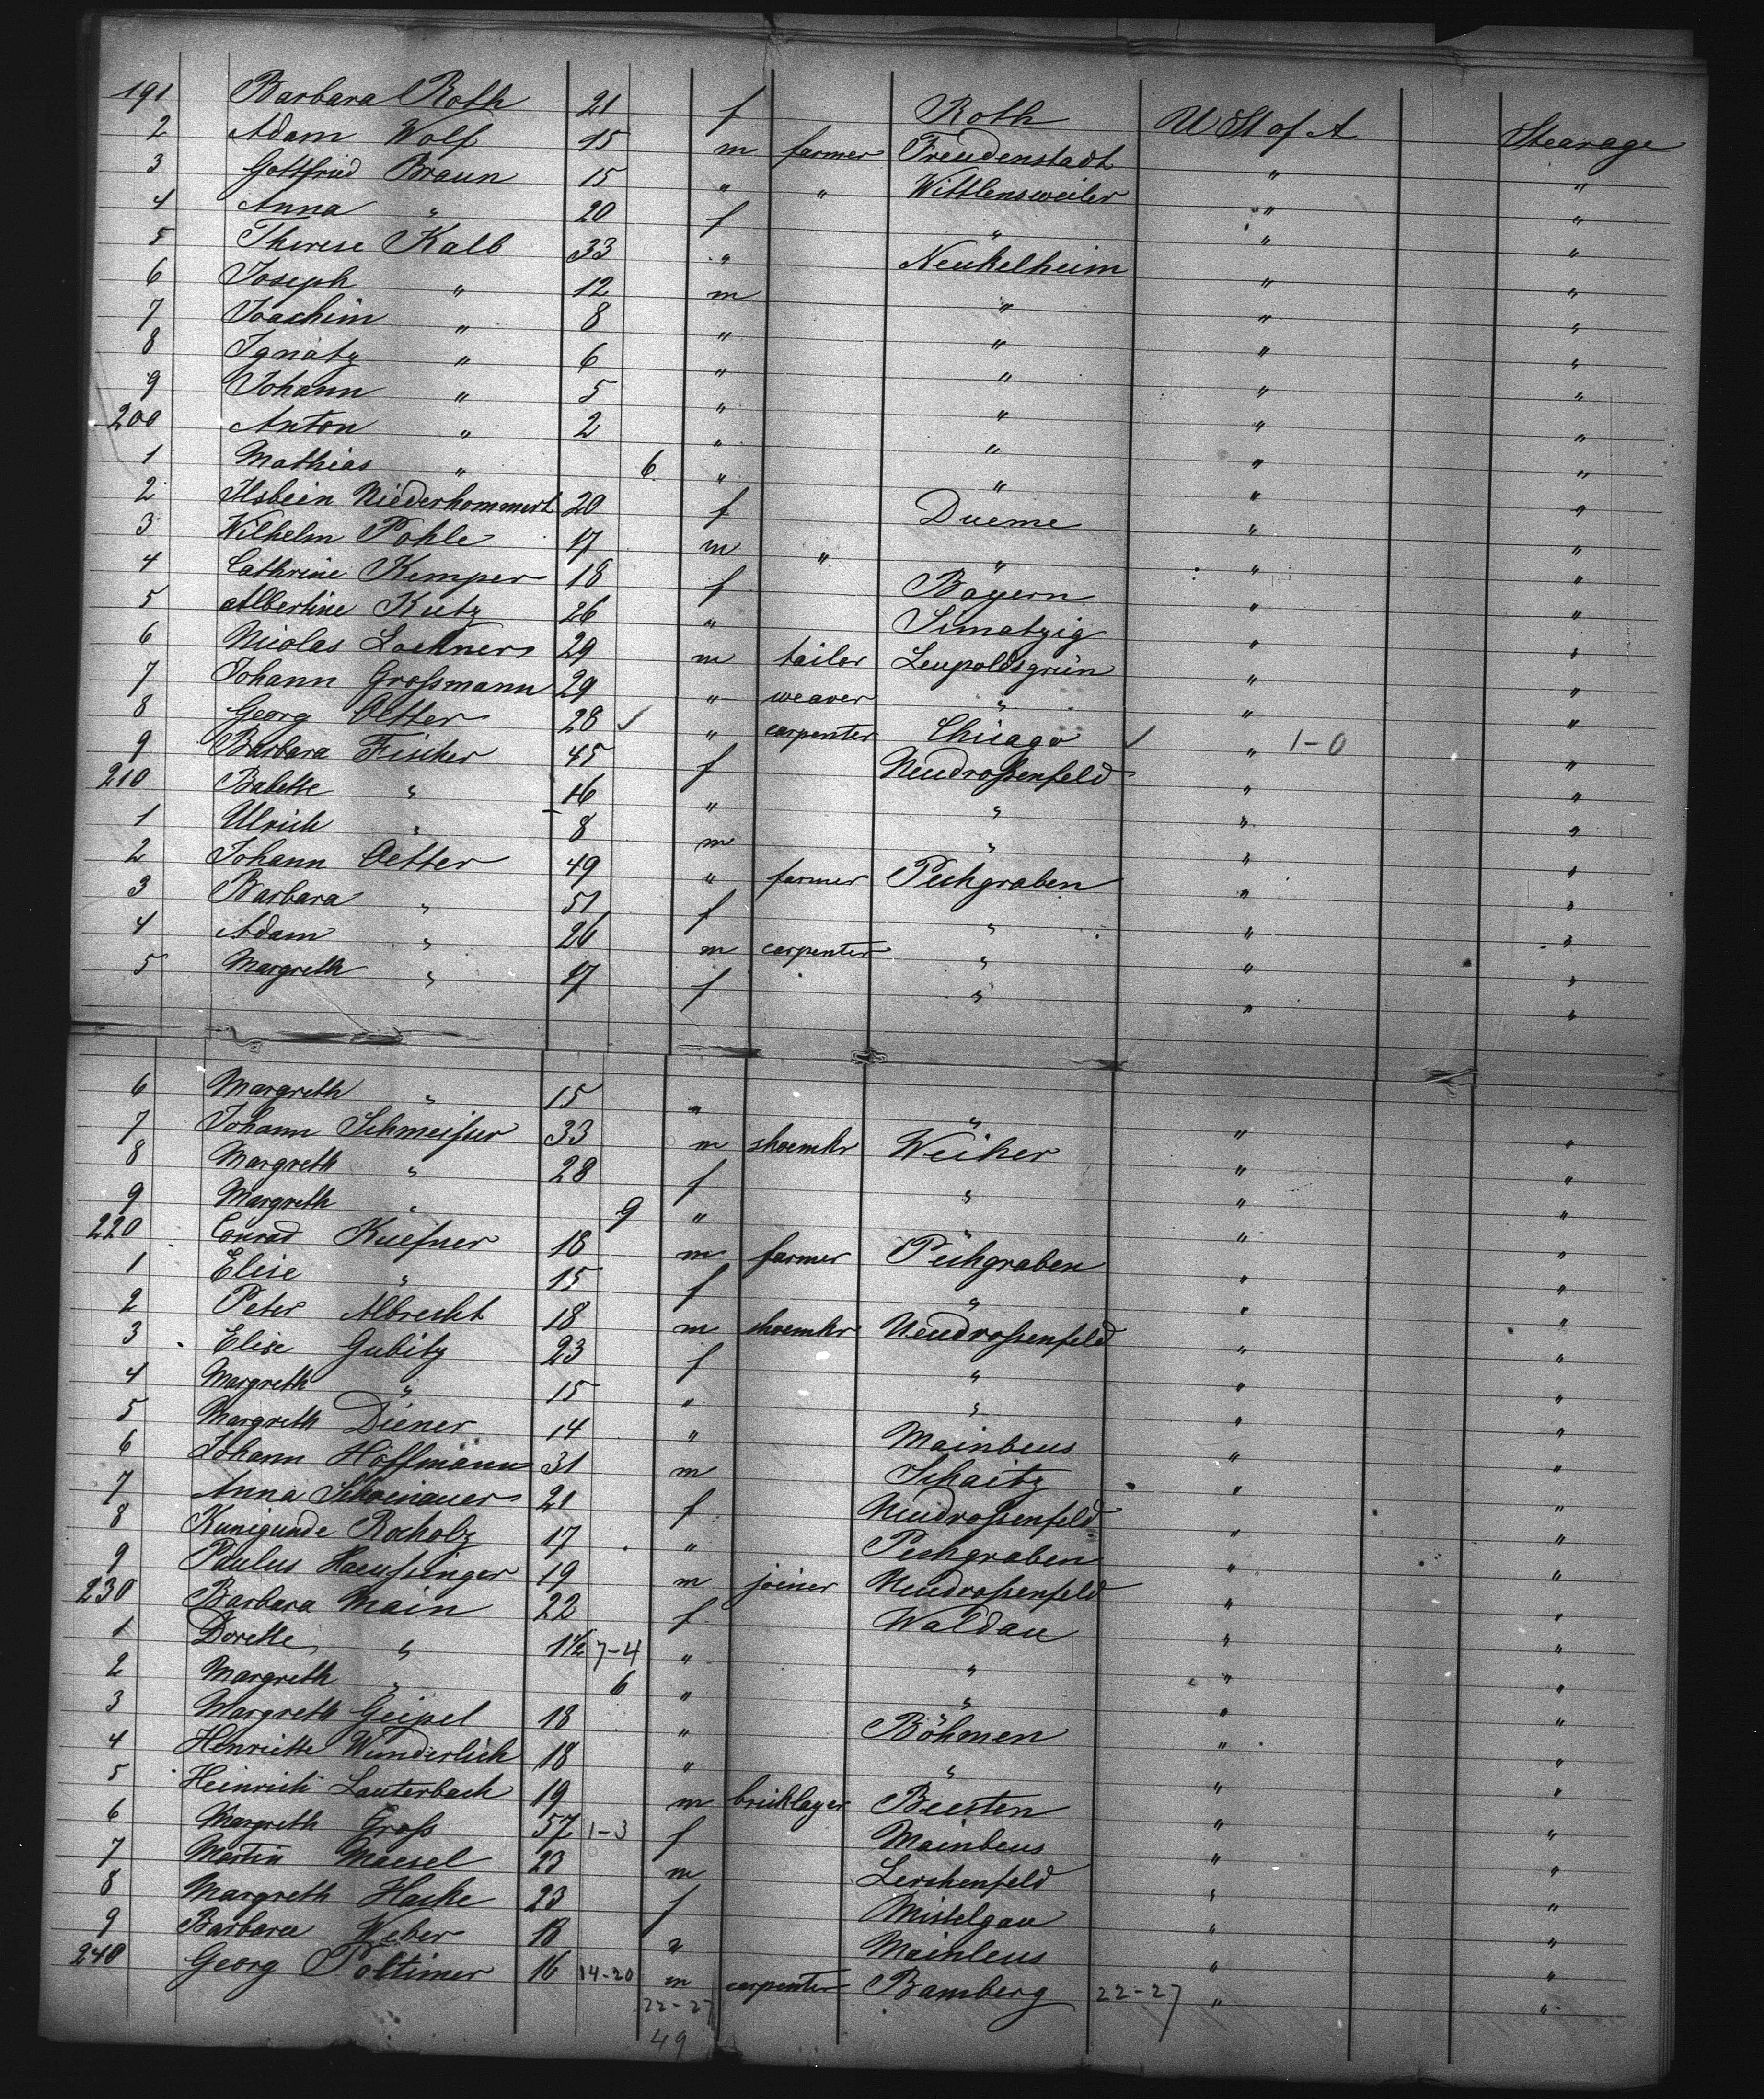 191 Barbara Roth 21 f Roth U St of A Stearage
2 Adam Wolf 15 m farmer Freudenstadt " "
3 Gottfried Braun 15 " " Wittlensweiler " "
4 Anna " 20 f " " "
5 Therese Kalb 33 " Neukelheim " "
6 Joseph " 12 m " " "
7 Joachim " 8 " " " "
8 Ignatz " 6 " " " "
9 Johann " 5 " " " "
200 Anton " 2 " " " "
1 Mathias " 6 " " " "
2 Ilsbein Niederhommert 20 f Dueme " "
3 Wilhelm Pohle 17 m " " " "
4 Cathrine Kemper 18 f Bayern " "
5 Albertine Kutz 26 " Simatzig " "
6 Nicolas Lochner 29 m tailor Leupoldsgrün " "
7 Johann Großmann 29 " weaver " " "
8 Georg Oetter 28 ✓ " carpenter Chicago ✓ " 1-0 "
9 Barbara Fischer 45 f Neudroßenfeld " "
210 Babette " 16 " " " "
1 Ulrich " 8 m " " "
2 Johann Oetter 49 " farmer Pechgraben " "
3 Barbara " 51 f " " "
4 Adam " 26 m carpenter " " "
5 Margreth " 17 f " " "
6 Margreth " 15 " " " "
7 Johann Schmeißer 33 m shoemkr Weiher " "
8 Margreth " 28 f " " "
9 Margreth " 9 " " " "
220 Conrad Kuefner 18 m farmer Pechgraben " "
1 Elise " 15 f " " "
2 Peter Albrecht 18 m shoemkr Neudroßenfeld " "
3 Elise Gubitz 23 f " " "
4 Margreth " 15 " " " "
5 Margreth Diener 14 " Mainbeus " "
6 Johann Hoffmann 31 m Schaitz " "
7 Anna Schoenauer 21 f Neudroßenfeld " "
8 Kunigunde Rocholz 17 " Pechgraben " "
9 Paulus Haeußinger 19 m joiner Neudroßenfeld " "
230 Barbara Main 22 f Waldau " "
1 Dorette " 1½ 7-4 " " " "
2 Margreth " 6 " " " "
3 Margreth Geipel 18 " Böhmen " "
4 Henriette Wunderlich 18 " " " "
5 Heinrich Lauterbach 19 m bricklayer Beesten " "
6 Margreth Groß 57 1-3 f Mainbeus " "
7 Martin Maesel 23 m Lerchenfeld " "
8 Margreth Haske 23 f Mistelgau " "
9 Barbara Weber 18 " Mainleus " "
240 Georg Poltimer 16 14-20 m carpenter Bamberg 22-27 " "
22-27
49